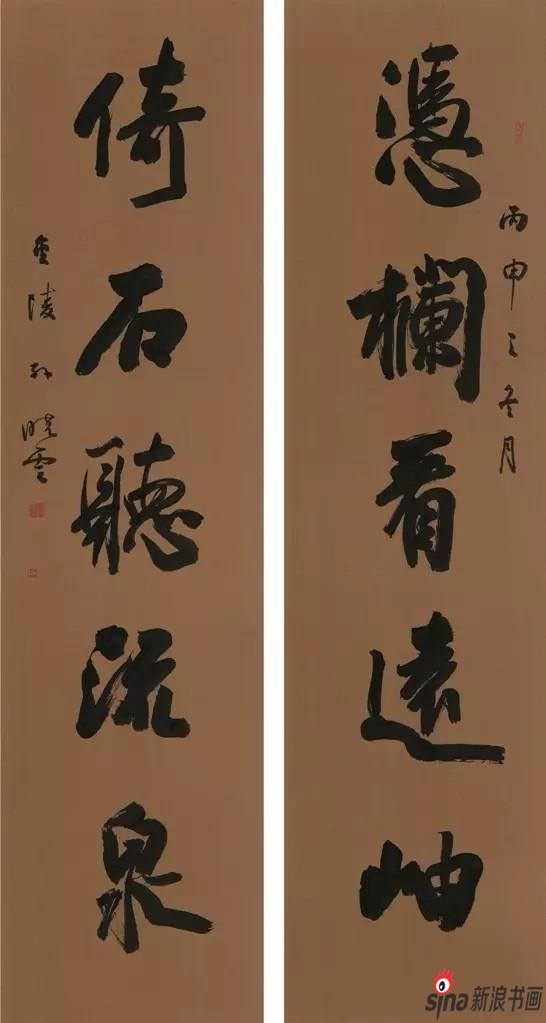 憑欄看遠岫
丙申之冬月
倚石聽流泉
金陵孙曉雲
sina新浪书画